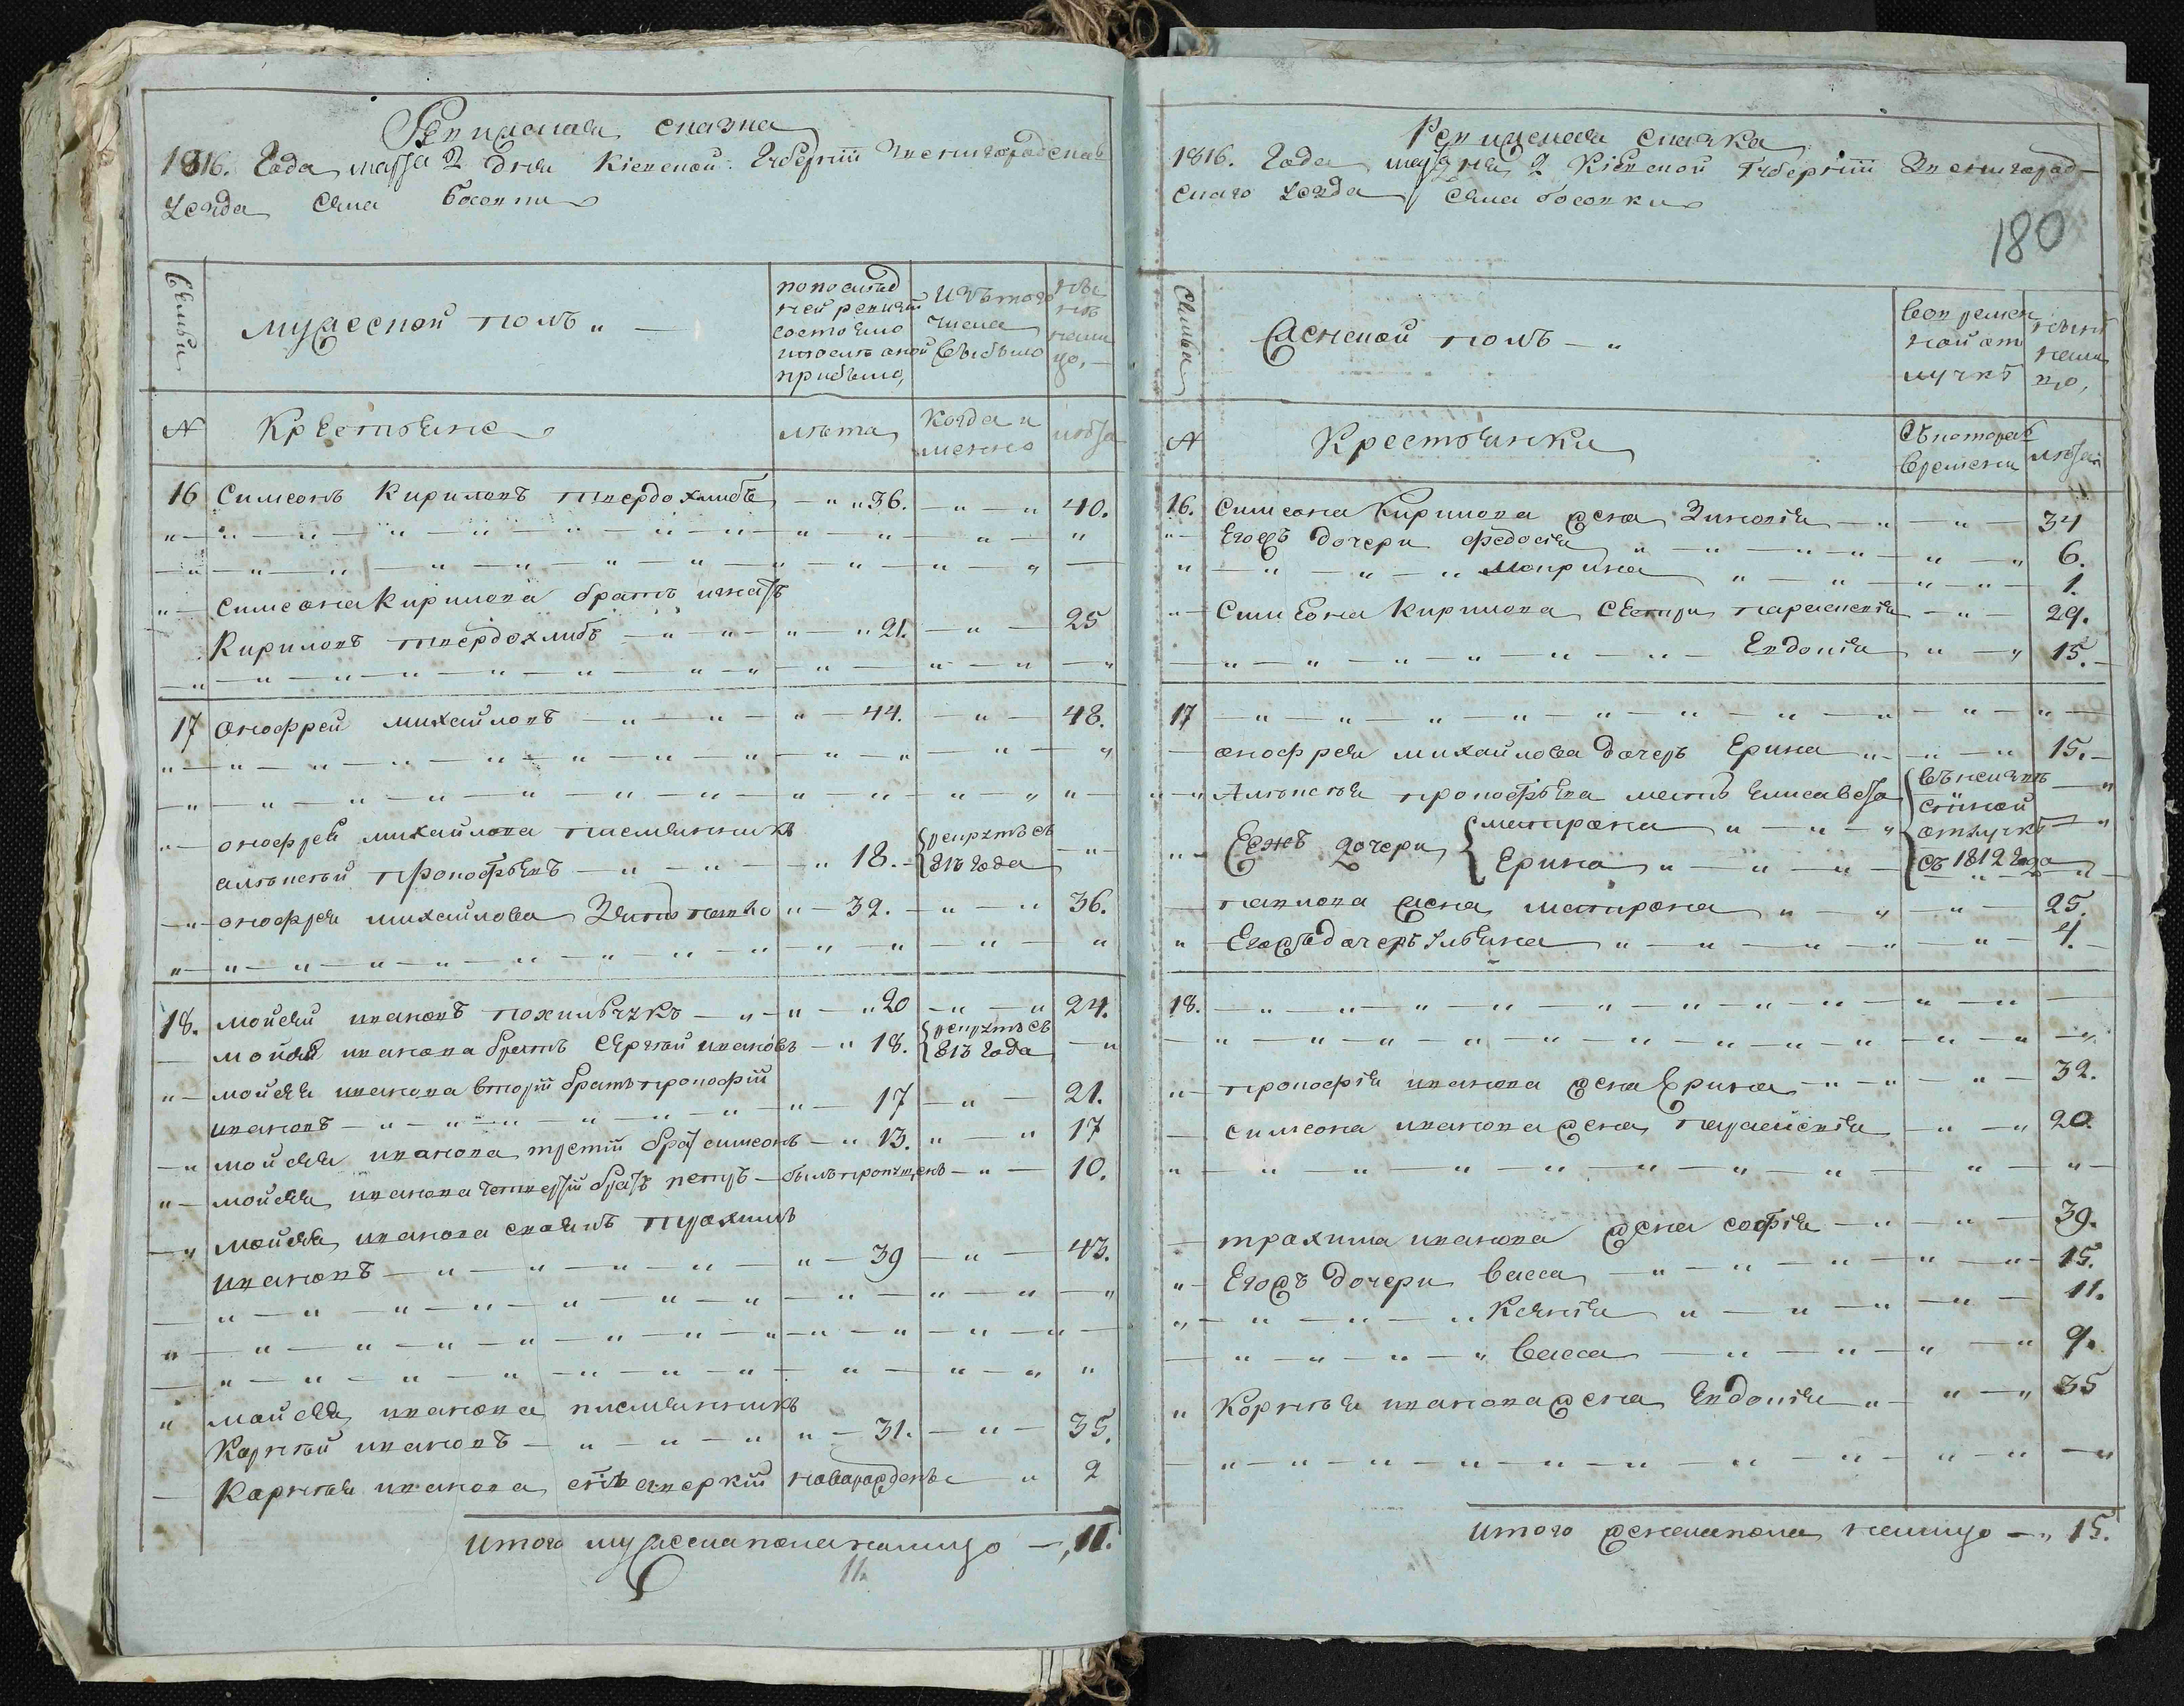 Ревизская сказка
1816. Года, марта 2 дня Кіевской Губерніи Звенигородскаго
уезда Села Босовки
Семьи
Мужеской полъ
по послед
ней ревизіи
состояло
и после оной
прибыло,
Изъ того
числа
выбыло
ныне
на
лицо,
№
Крестьяне
лѣта
когда и
менно
лѣта
16 Симеонъ Кириловъ твердохлибъ — " " 36. — " — " 40.
Симеона Кирилова братъ игнатъ
Кириловъ твердохлибъ — " — " — " — " 21. — " — 25
17 Онофрей михайловъ — " — " — " — 44. — " — 48.
онофрея михайлова племянникъ
алексей прокофьевъ — " — " — " 18. — рекрутъ съ
813 года — " —
онофрея михайлова Зять павло " — 32. — " — " 36.
18. мойсей ивановъ похильчукъ — " — " — " 20 — " — " 24.
мойсея иванова братъ Сергей ивановъ — " 18. рекрутъ съ
813 года — "
" — мойсея иванова вторій братъ прокофій
ивановъ — " — " — " — " — " — " — 17 — " — 21.
— " мойсея иванова третій братъ симеонъ — " 13. " — " 17
" — мойсея иванова четвертій братъ петръ — былъ пропущенъ — " — 10.
— " мойсея иванова своякъ трохимъ
ивановъ — " — " — " — " — " — 39 — " — 43.
" мойсея иванова племянникъ
Корней ивановъ — " — " — " " — 31. — " — 35.
— Корнея иванова сынъ аверкій новорожденъ — " 2
итого мужеска пола налицо — , 11.
11.
Ревизская сказка
1816. Года марта 2 Кіевской Губерніи Звенигород-
скаго уезда Села босовки
180
Семьи
Женской полъ — "
Вовремен
ной от
лучкѣ
ныне
нали
цо,
№
Крестьянки
Съ котораго
времени
лѣта
16. Симеона Кирилова жена Зиновія — " — " — 34
" — Его жъ дочери федосія " — " — " — " — " — " 6.
" — " — " — " мотрина " — " — " — " — 1.
" — Симеона Кирилова Сестры параскевія — " — 29.
— " — " — " — " — " — " — Евдокія " — " 15. —
17 — " — " — " — " — " — " — " — " — " — " —
— онофрея михайлова дочерь Ерина " — " — " 15. —
" — " Алексея прокофьева мать Елисавета
Въ неизвѣ
стной
отлучкѣ
съ 1812 года
" — Еяжъ дочери
матрона " — " — "
Ерина " — " — " —
— павлова жена матрона " — " — " — 25.
" Егожъ дочерь ульяна " — " — " — " — " — 4.
18. — " — " — " — " — " — " — " — " — " — " —
" — прокофія иванова жена Ерина — " — " — " — 32.
— симеона иванова жена параскевія — " — " 20.
— трохима иванова жена софія — " — " — 39.
" — Его жъ дочери Васса — " — " — " — " — " — " — 15.
" — " — " — " Ксенія " — " — " — " — 11.
— " — " — " — " Васса — " — " — " — " 9.
" Корнея иванова жена Евдокія " — " — " 35
итого женска пола налицо — " 15.